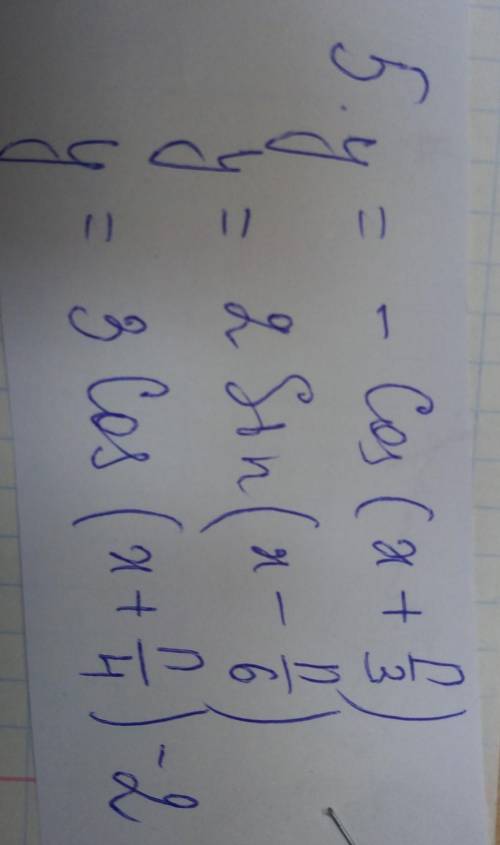 5. y = - Cos (x + π/3)
y = 2 Sin (x - π/6)
y = 3 Cos (x + π/4) - 2